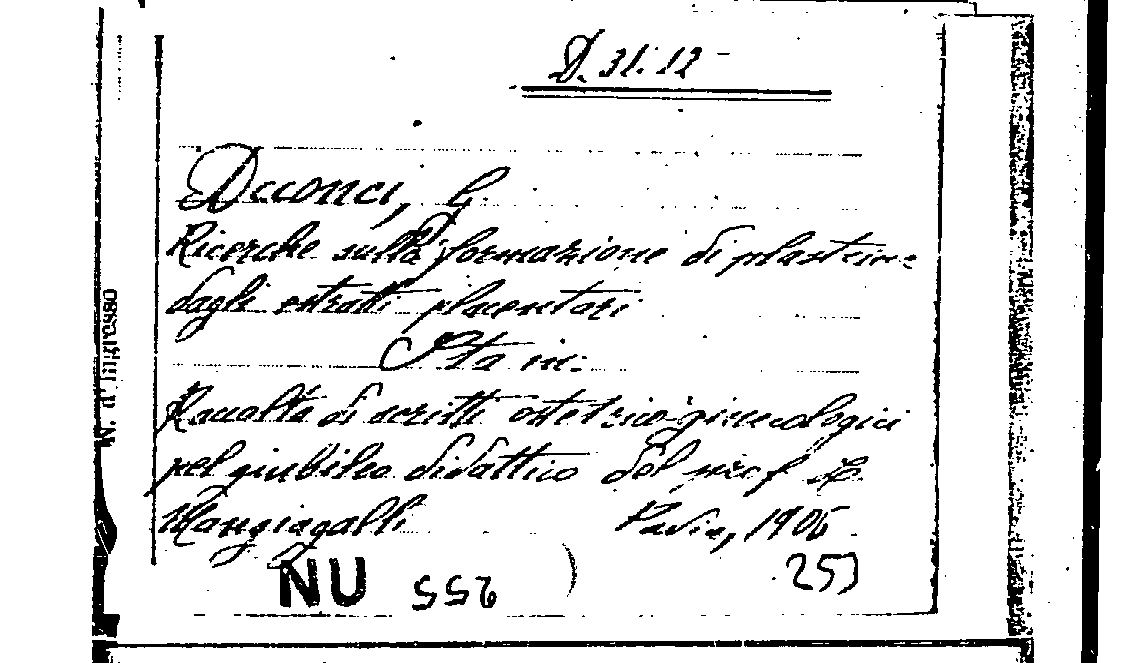 D. 31. 12
Deconci, G.
Ricerche sulla formazione di plasteine
dagli estratti placentari
Sta in:
Raccolta di scritti ostetrico-ginecologici
pel giubileo didattico del prof L.
Mangiagalli Pavia, 1906
NU 552 253
N. d'Ingresso